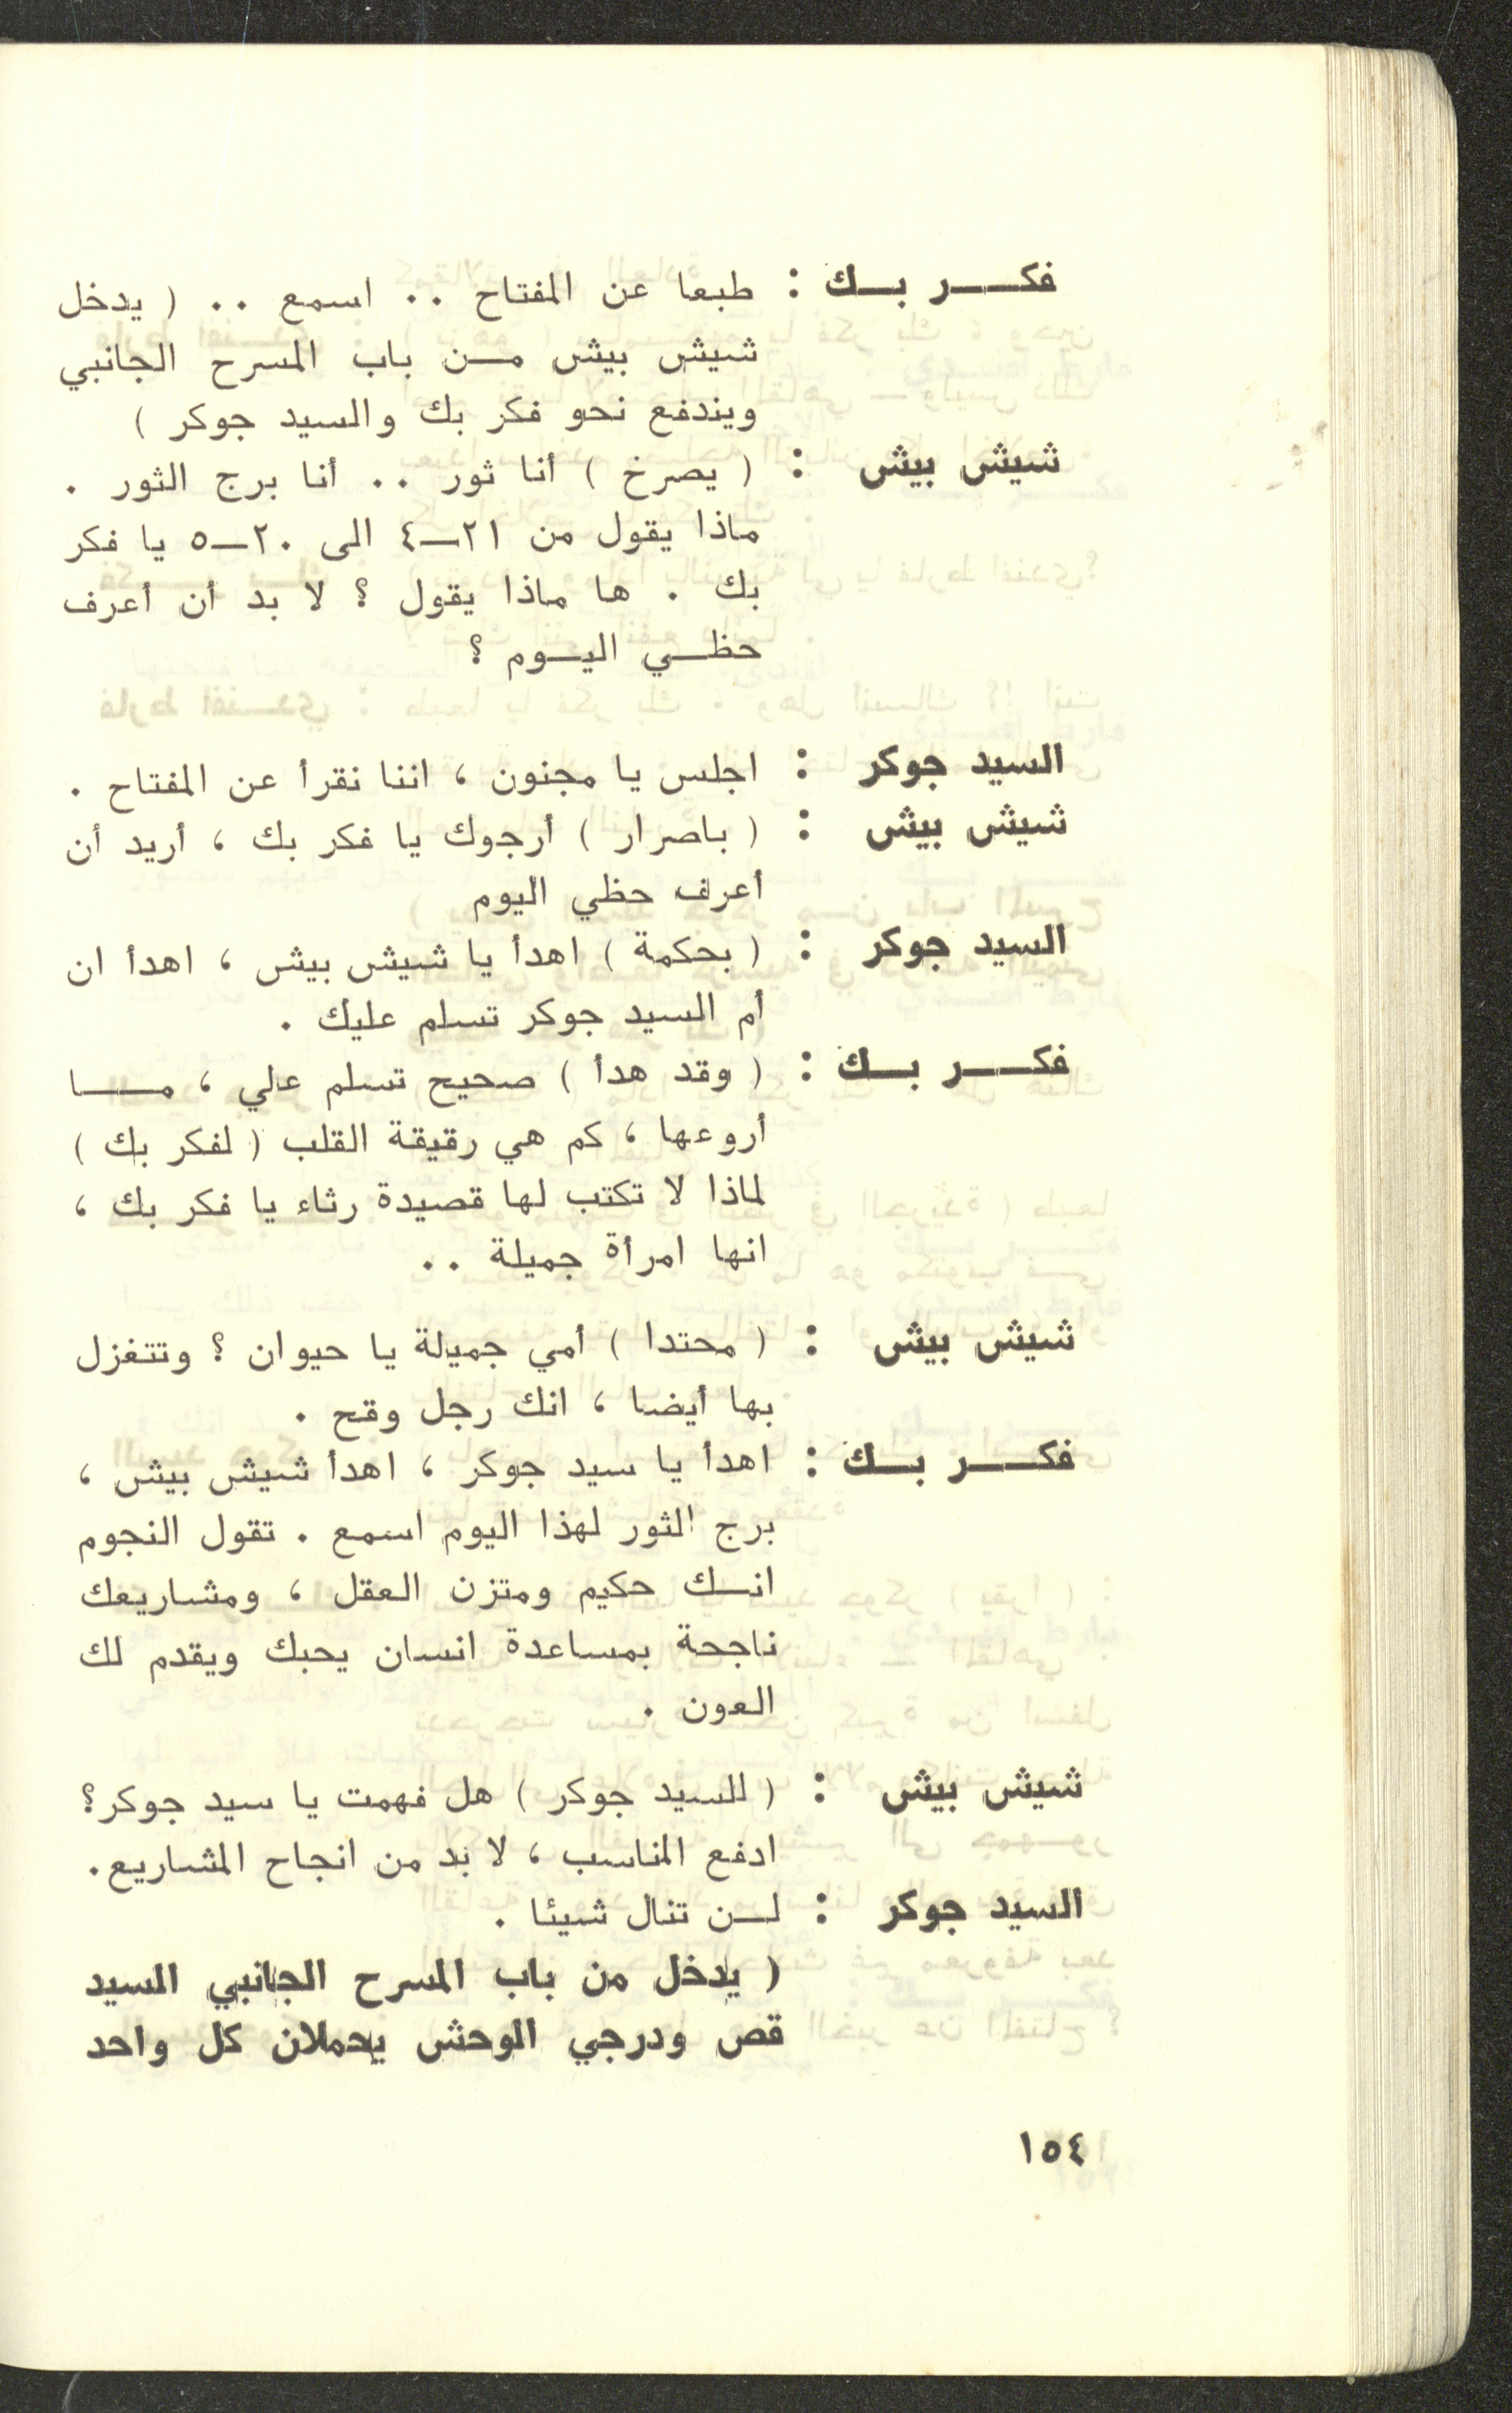 فكر بك : طبعا عن المفتاح .. اسمع .. ( يدخل
شيش بيش من باب المسرح الجانبي
ويندفع نحو فكر بك والسيد جوكر )
شيش بيش : ( يصرخ ) أنا ثور .. أنا برج الثور .
ماذا يقول من ٢١—٤ الى ٢٠—٥ يا فكر
بك . ها ماذا يقول ؟ لا بد أن أعرف
حظي اليوم ؟
السيد جوكر : اجلس يا مجنون ، اننا نقرأ عن المفتاح .
شيش بيش : ( باصرار ) أرجوك يا فكر بك ، أريد أن
أعرف حظي اليوم
السيد جوكر : ( بحكمة ) اهدأ يا شيش بيش ، اهدأ ان
أم السيد جوكر تسلم عليك .
فكر بك : ( وقد هدأ ) صحيح تسلم علي ، ما
أروعها ، كم هي رقيقة القلب ( لفكر بك )
لماذا لا تكتب لها قصيدة رثاء يا فكر بك ،
انها امرأة جميلة ..
شيش بيش : ( محتدا ) أمي جميلة يا حيوان ؟ وتتغزل
بها أيضا ، انك رجل وقح .
فكر بك : اهدأ يا سيد جوكر ، اهدأ شيش بيش ،
برج الثور لهذا اليوم اسمع . تقول النجوم
انك حكيم ومتزن العقل ، ومشاريعك
ناجحة بمساعدة انسان يحبك ويقدم لك
العون .
شيش بيش : ( للسيد جوكر ) هل فهمت يا سيد جوكر؟
ادفع المناسب ، لا بد من انجاح المشاريع .
السيد جوكر : لن تنال شيئا .
( يدخل من باب المسرح الجانبي السيد
قص ودرجي الوحش يحملان كل واحد
١٥٤